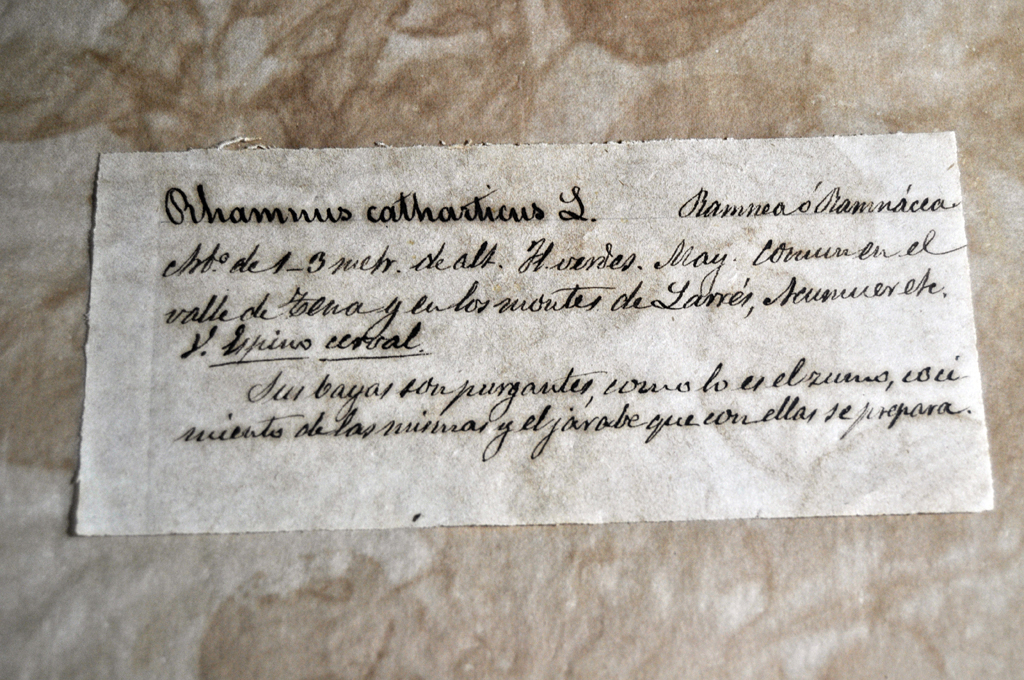 Rhamnus catharticus L. Ramnea ó Ramnácea
Arb.º de 1-3 metr. de alt. Fl. verdes. May. Comun en el
valle de Tena y en los montes de Larrés, Acumuer etc.
V. Espino cerval.
Sus bayas son purgantes, como lo es el zumo, coci
miento de las mismas y el jarabe que con ellas se prepara.